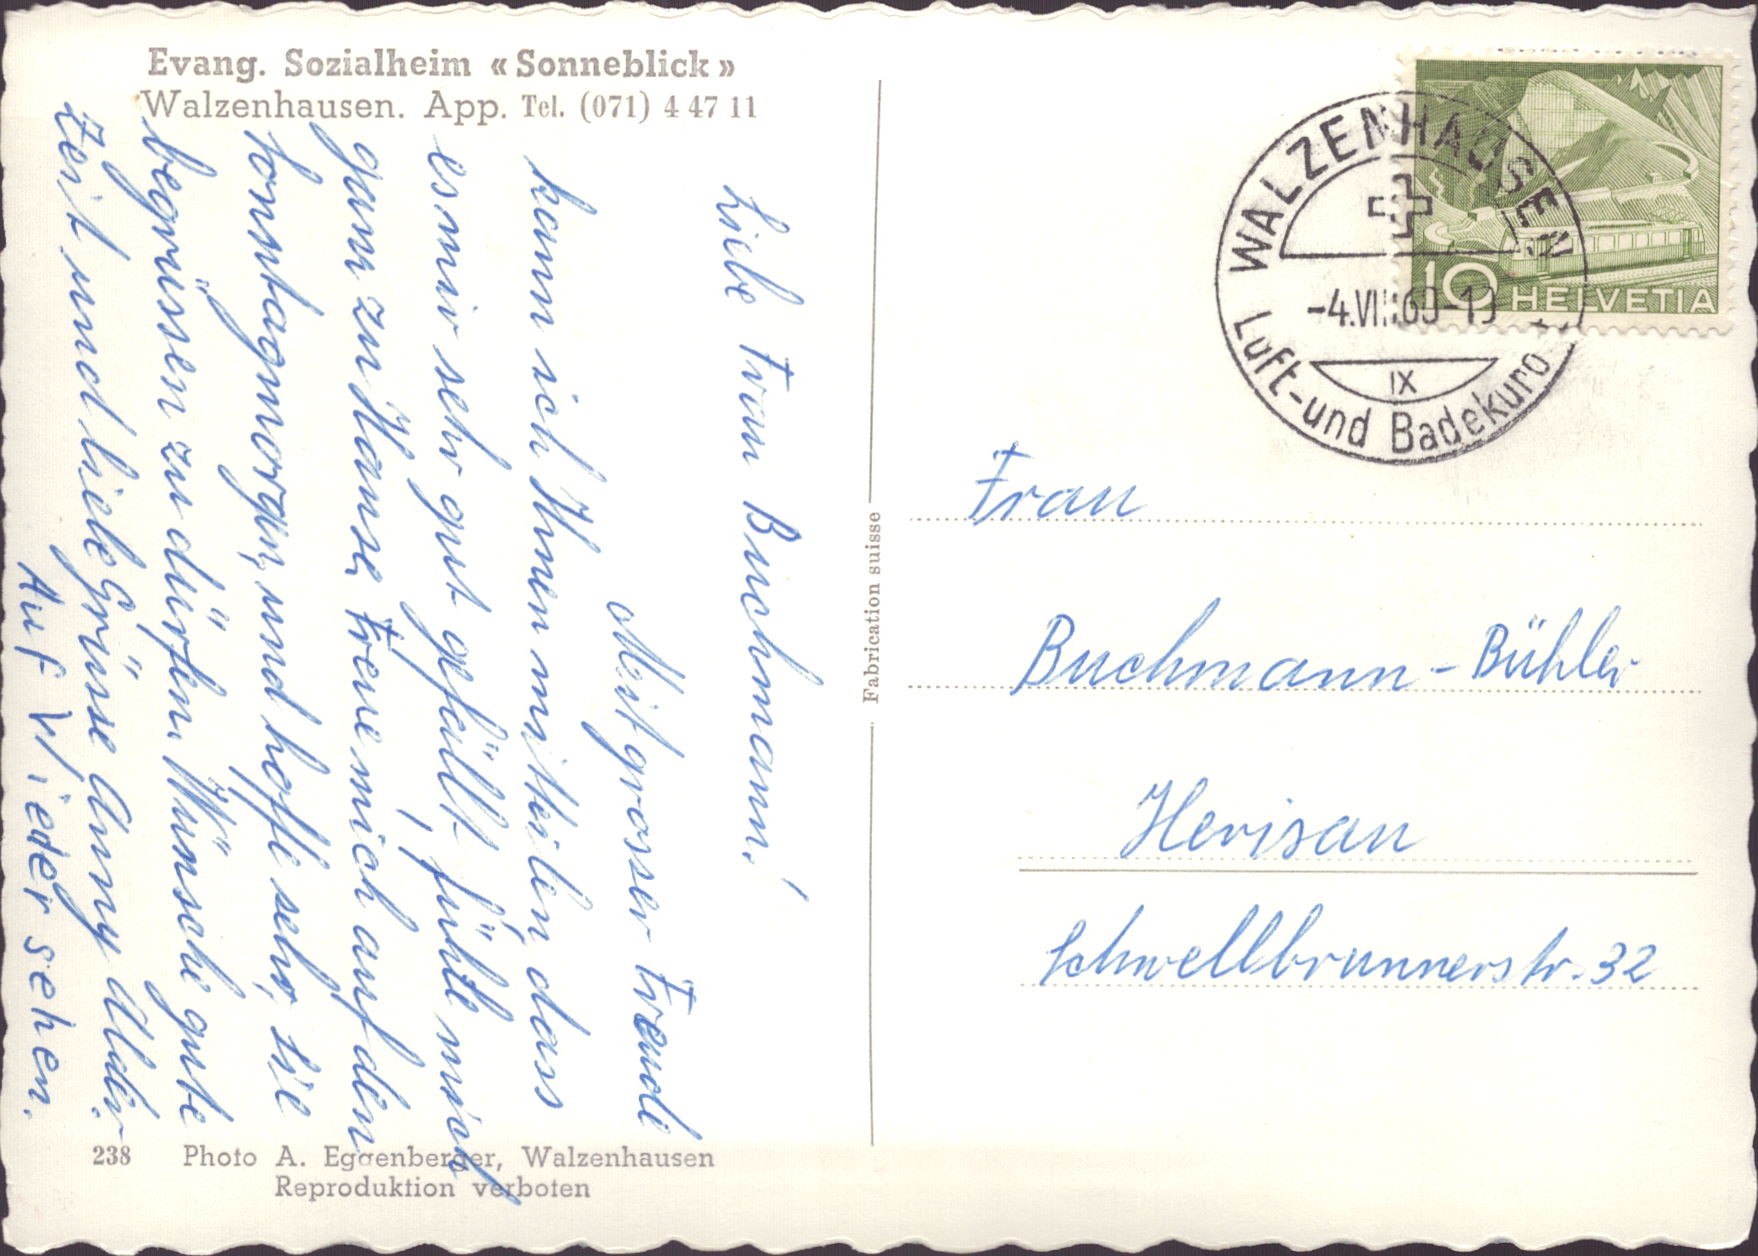 Evang. Sozialheim « Sonneblick »
Walzenhausen. App. Tel. (071) 4 47 11
Liebe Frau Buchmann!
Mit grosser Freude
kann ich Ihnen mitteilen, dass
es mir sehr gut gefällt, fühle mich
ganz zu Hause. Freue mich auf den
Sonntagmorgen, und hoffe sehr, Sie
begrüssen zu dürfen. Wünsche gute
Zeit und liebe Grüsse Anny
Auf Wieder sehen.
238 Photo A. Eggenberger, Walzenhausen
Reproduktion verboten
Fabrication suisse
WALZENHAUSEN
-4.VIII.60-19
IX
Luft-und Badekuro
10 HELVETIA
Frau
Buchmann-Bühler
Herisau
Schwellbrunnerstr. 32